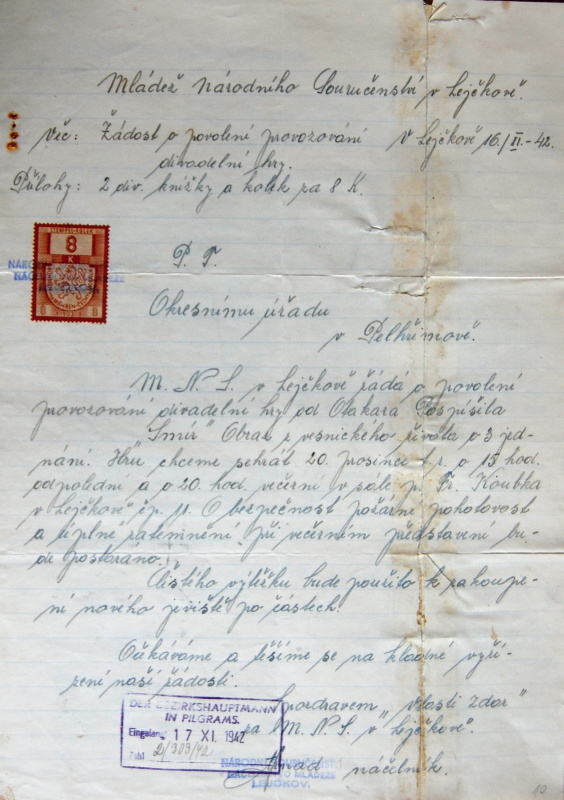 Mládež Národního Souručenství v Lejčkově.
Věc: Žádost o povolení provozování
v Lejčkově 16./XI.-42.
divadelní hry.
Přílohy: 2 div. knížky a kolek za 8 K.
STEMPEL-KOLEK
8
K
8 8
P. T.
Okresnímu úřadu
v Pelhřimově.
M. N. S. v Lejčkově žádá o povolení
provozování divadelní hry od Otakara Pospíšila
"Smír" Obraz z vesnického života o 3 jed-
nání. Hru chceme sehrát 20. prosince t. r. o 15 hod.
odpolední a o 20. hod. večerní v sále p. Fr. Koubka
v Lejčkově čp. 11. O bezpečnost požární pohotovost
a úplné zatemnění při večerním představení bu-
de postaráno.
Čistého výtěžku bude použito k zakoupe-
ní nového jeviště po částech.
Očkáváme a těšíme se na kladné vyří-
zení naší žádosti.
S pozdravem "Vlasti zdar"
za M. N. S. v Lejčkově.
náčelník.
DER BEZIRKSHAUPTMANN
IN PILGRAMS.
Eingelangt 17 XI. 1942
Zahl
NÁRODNÍ SOURUČENSTVÍ
LEJČKOV.
10